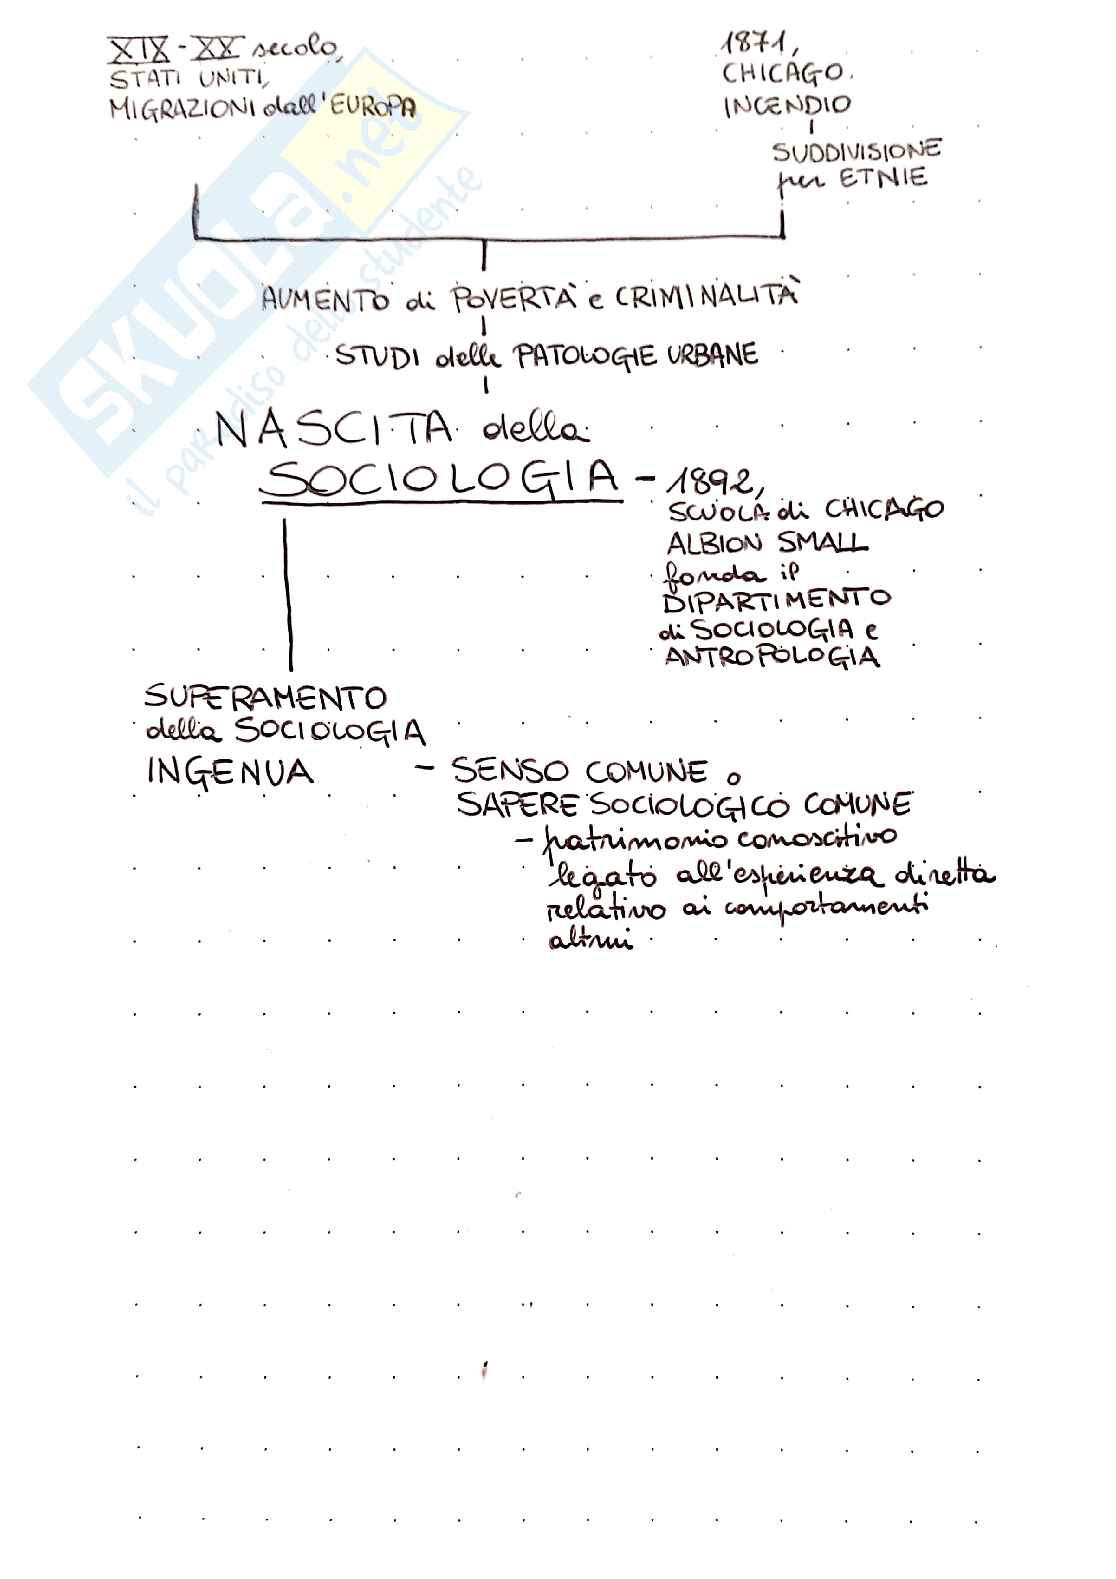 XIX-XX secolo,
STATI UNITI,
MIGRAZIONI dall'EUROPA
1871,
CHICAGO.
INCENDIO
SUDDIVISIONE
per ETNIE
AUMENTO di POVERTÀ e CRIMINALITÀ
STUDI delle PATOLOGIE URBANE
NASCITA della
SOCIOLOGIA - 1892,
SCUOLA di CHICAGO
ALBION SMALL
fonda il
DIPARTIMENTO
di SOCIOLOGIA e
ANTROPOLOGIA
SUPERAMENTO
della SOCIOLOGIA
INGENUA - SENSO COMUNE o
SAPERE SOCIOLOGICO COMUNE
- patrimonio conoscitivo
legato all'esperienza diretta
relativo ai comportamenti
altrui
SKUOLA.net
il paradiso dello studente